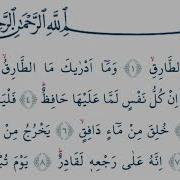 اللّٰهِ الرَّحْمٰنِ الرَّ
الطَّارِقِۙ ﴿١﴾ وَمَآ اَدْرٰىكَ مَا الطَّارِقُۙ
اِنْ كُلُّ نَفْسٍ لَمَّا عَلَيْهَا حَافِظٌؕ ﴿٤﴾
خُلِقَ مِنْ مَّآءٍ دَافِقٍۙ ﴿٦﴾ يَخْرُجُ مِنْ
﴿٧﴾ اِنَّهٗ عَلٰى رَجْعِهٖ لَقَادِرٌؕ ﴿٨﴾ يَوْمَ